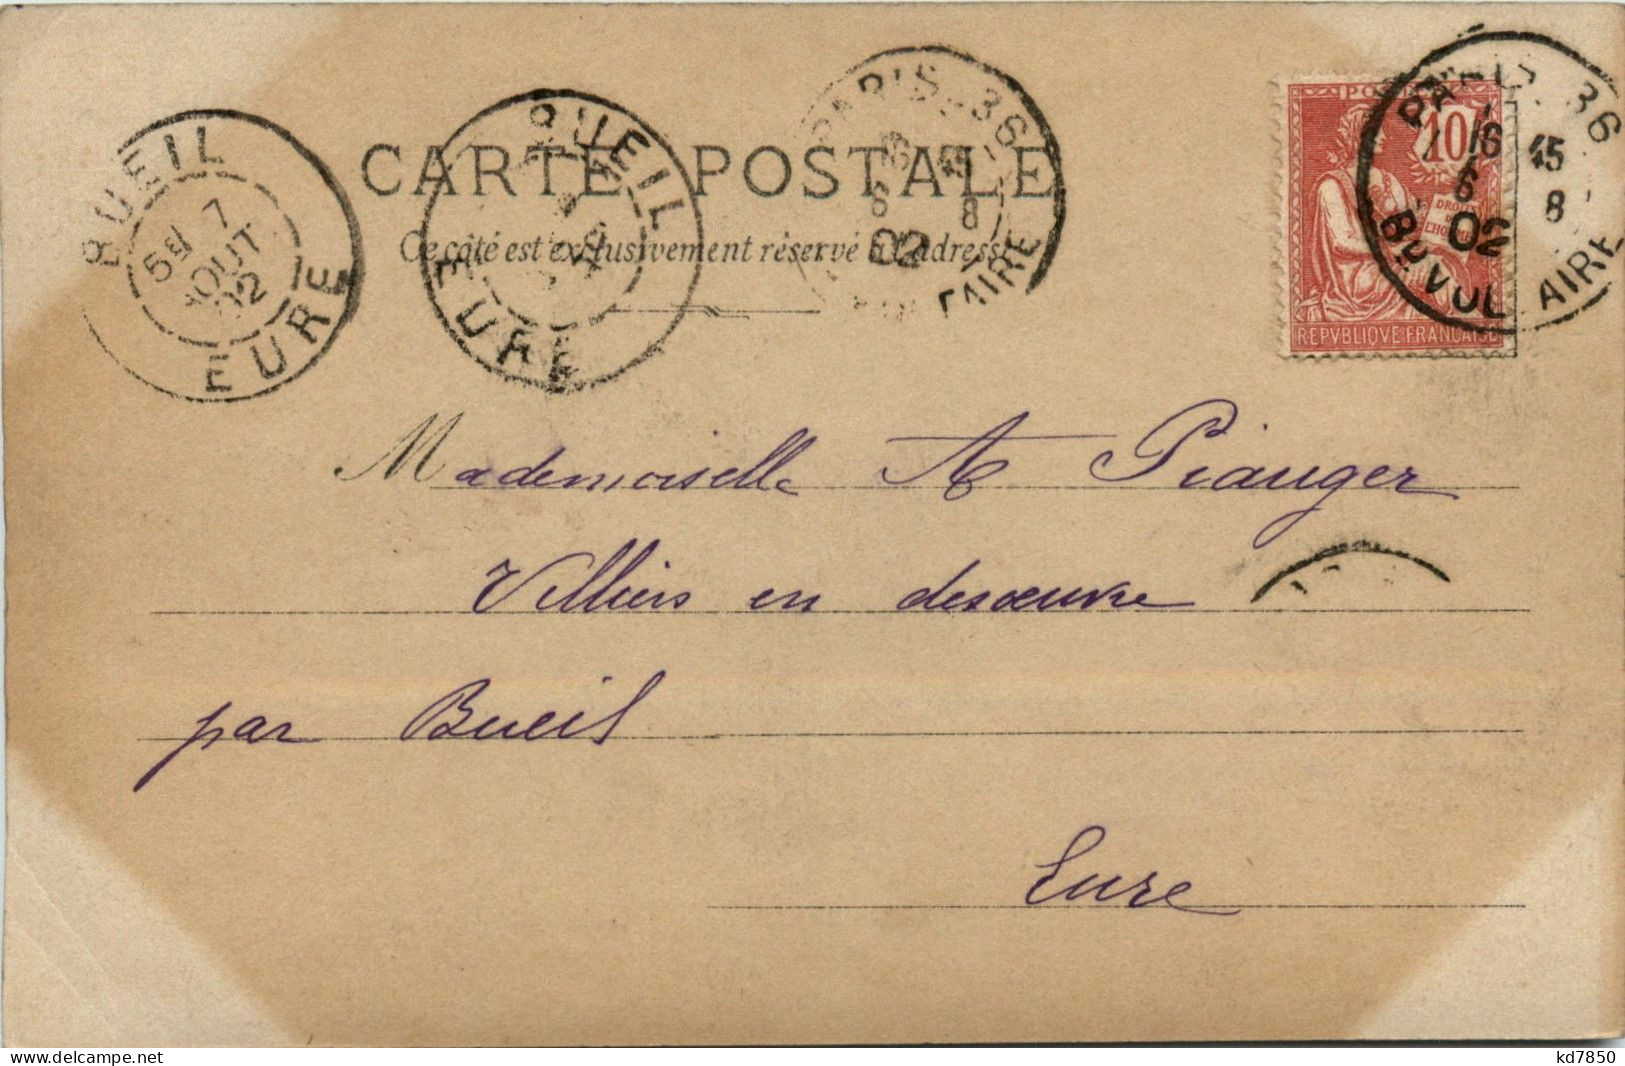 BUEIL
5E 7
AOUT
02
EURE
BUEIL
EURE
PARIS 36
16 45
6 8
02
TAIRE
CARTE POSTALE
Ce côté est exclusivement réservé à l'adresse
POSTES
10
DROITS
DE
L'HOMME
REPVBLIQVE FRANÇAISE
PARIS 36
16 45
6 8
02
Bd VOLTAIRE
Mademoiselle A Pianger
Villiers en desoeuvre
par Bueil
Eure
kd7850